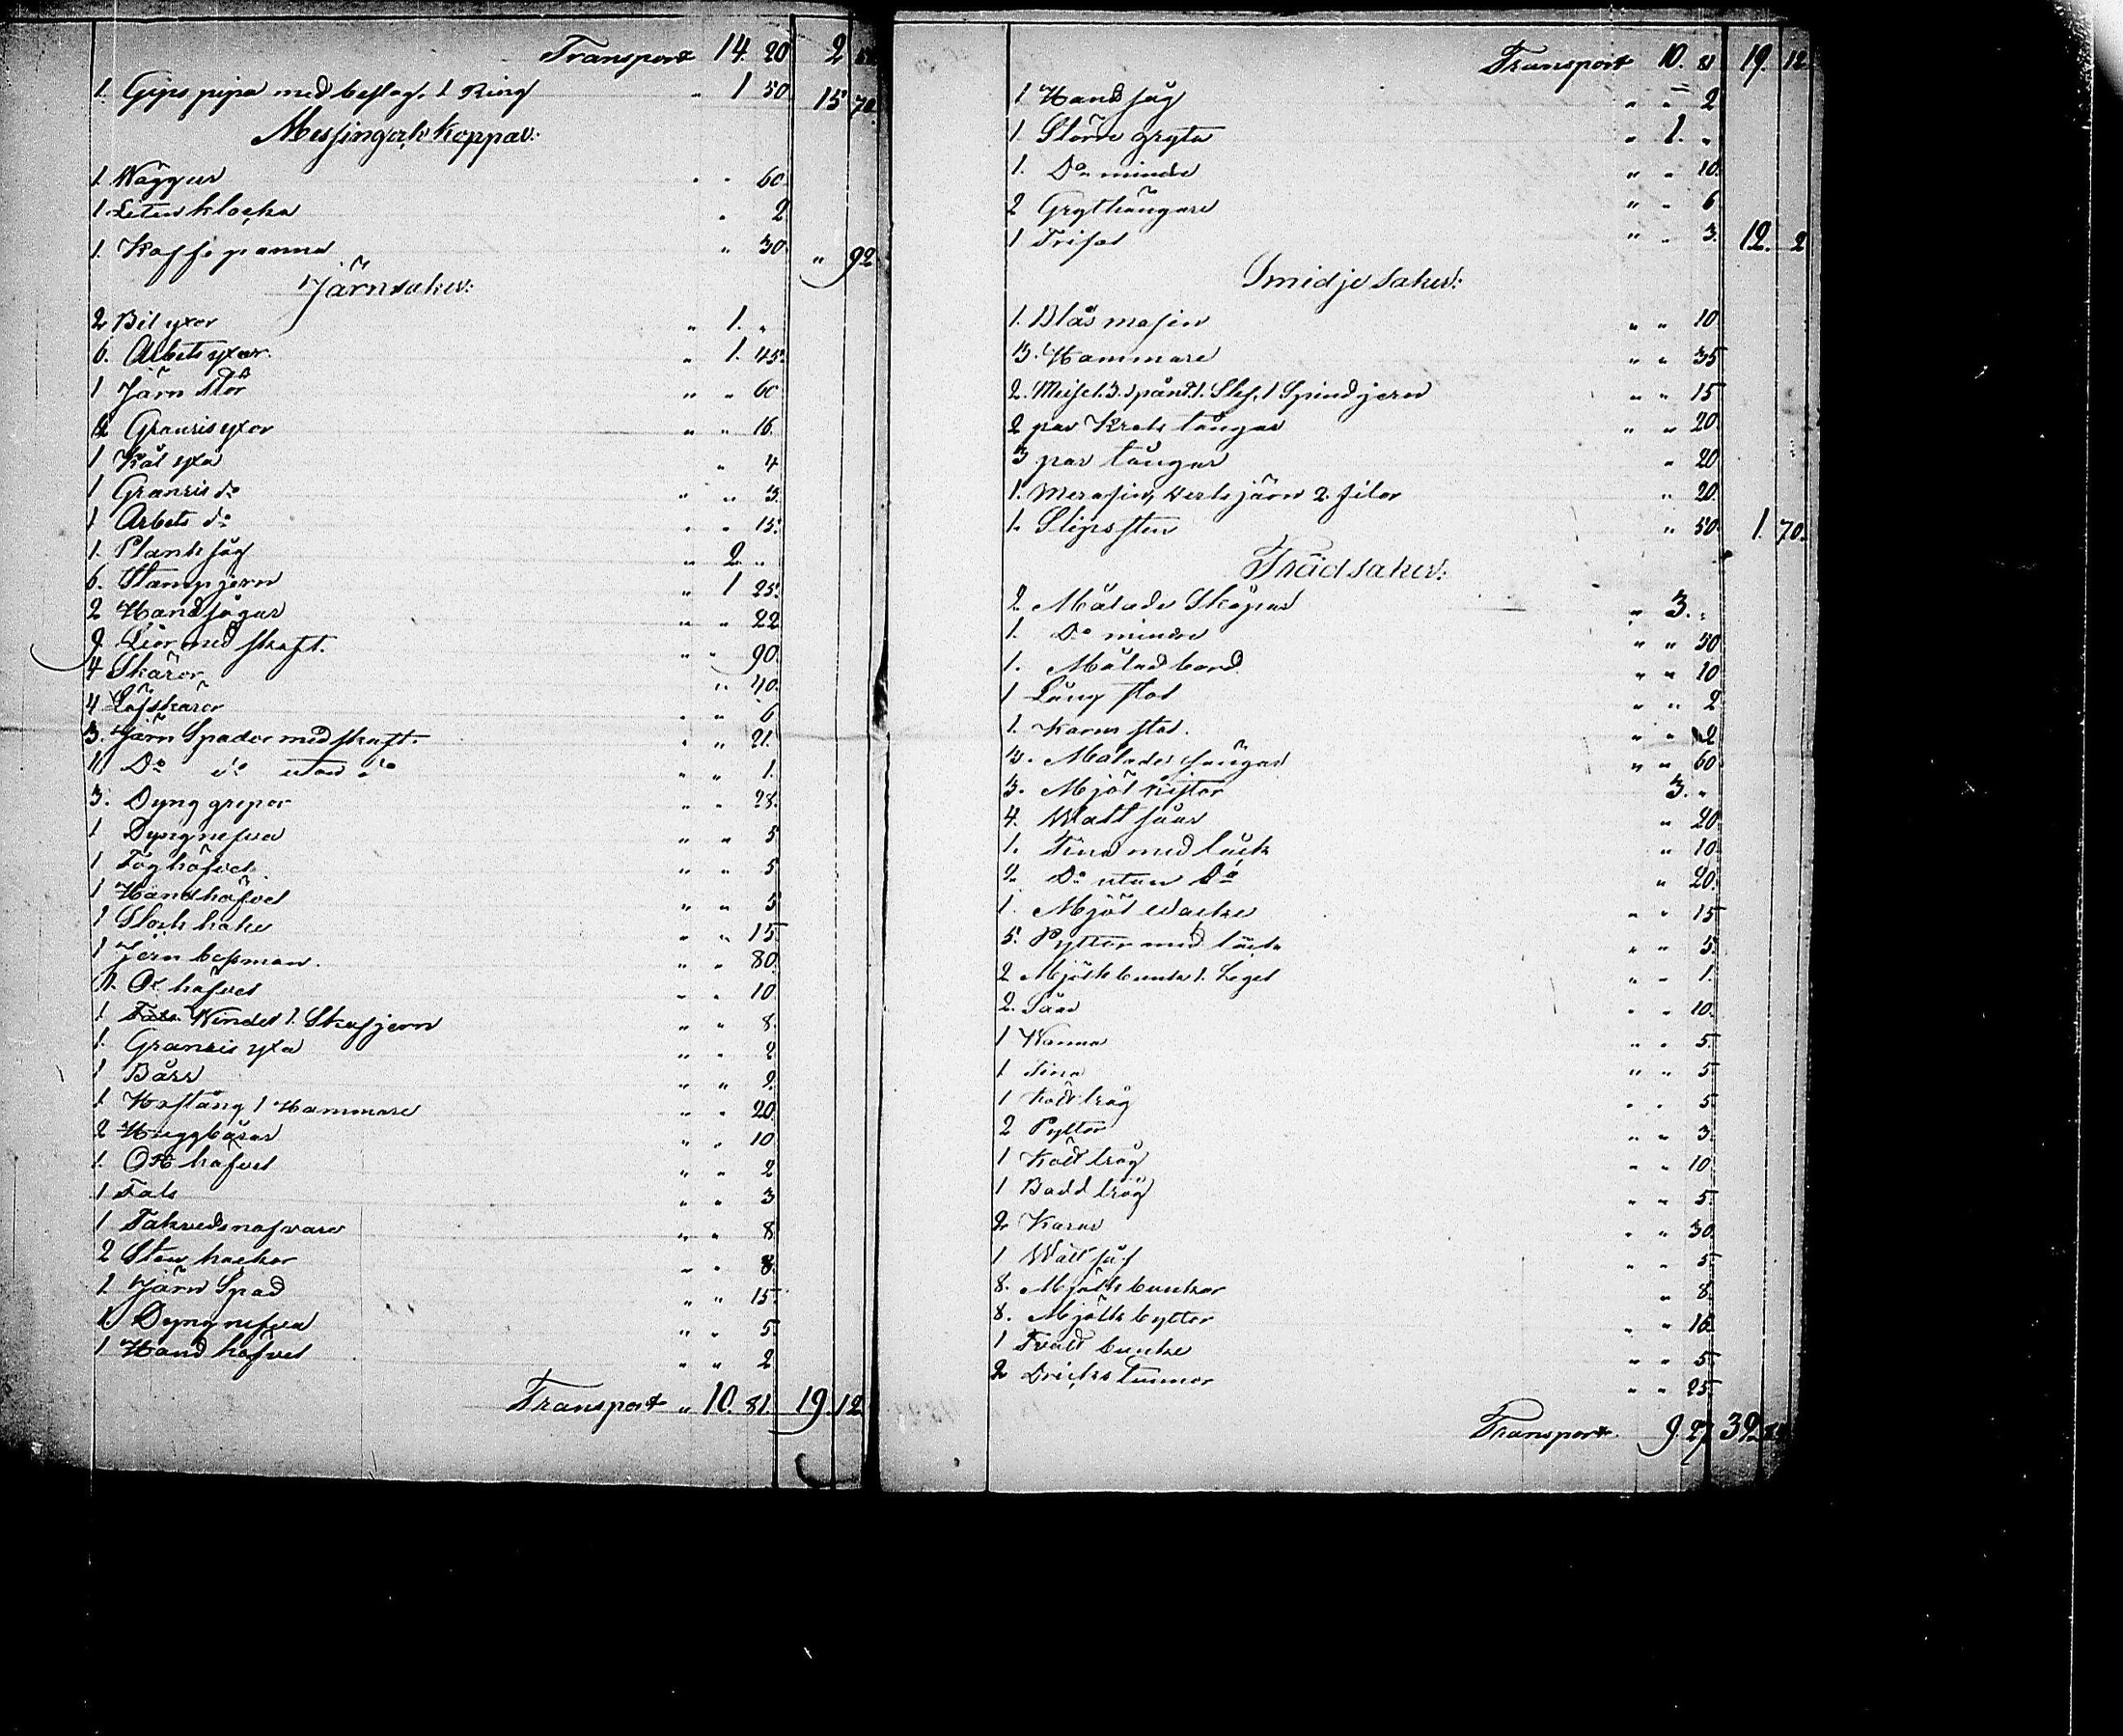 Transport 14. 20 2
1. Gips pipa med beslag. 1 Ring " 1 50 15 70.
Messing och Koppar:
1 Wäggur " " 60.
1 Liten klocka " 2
1. Kaffe panna " 30. " 92
Järnsaker:
2 Bil yxor " 1. "
6. Arbets yxor. " 1. 45.
1 Järn stör " " 60
Granris yxor " " 16.
1 Kål yxa " 4
1 Granris do " " 3.
1 Arbets do " " 15.
1. Plank såg " 2 "
6. Stamp jern " 1 25.
2 Handsågar " " 22
9 Liar med skaft. " " 90.
4 Skäror " 40.
4 Löfskäror " " 6
3. Järn Spader med skaft. " " 21.
1 Do do utan do " " 1.
3. Dyng grepar " " 28.
1 Dyngnefva " " 5
1. Toghöfvel " " 5
1 Handhöfvel " " 5
1 Stock hake " " 15.
1 Järn besman. " " 80.
1. Ox höfvel " " 10
1. Windel 1. Skafjern " " 8.
1. Granris yxa " " 2
1 Bårr " " 2.
1 Hoftång 1 Hammare " " 20.
2 Huggbårar " " 10
1. Ox höfvel " " 2
1 Fals " " 3
1 Takvedsnafvare " " 8
2 Sten hackor " " 8.
1. Järn Spad " " 15.
1 Dyngnefva " " 5.
1 Hand höfvel " " 2
Transport " 10. 81. 19. 12.
Transport 10. 81 19. 12
1 Handsåg " " 2
1. Större gryta " 1. "
1. Do mindre " " 10.
2 Grythängare " " 6
1 Trifot " " 3. 12. 2
Smidje saker:
1. Blås masin " " 10
3. Hammare " " 35
2. Meisel. 3. Spånd 1. Slef. 1 Spindjern " " 15
2 par Krok tänger " " 20
3 par tänger " 20
1. järn 2. filar " 20.
1. Slipsten " 50. 1. 70.
Trädsaker:
2 Målade Skåpar " 3. "
1. Do mindre " " 50
1. Målad bord " " 10
1 Lång stol " " 2
1. Karm stol. " " 2
Målade sängar " " 60
3. Mjöl kistor 3. "
4. Watt såar " 20
1. Tina med låck " 10.
2 Do utan Do " 20.
1. Mjöl " " 15
5. Pyttor med låck " " 5.
2 Mjölkbunk 1. Legel " " 1.
2. Såar " " 10.
1 Kanna " " 5.
1 Tina " " 5
1 Kött tråg " " 5.
2 Pyttor " " 3.
1 Kött tråg " " 10.
1 Badd tråg " " 5.
2 Karar " " 30.
1 Watt så " " 5
8. Mjölk bunkar " 8.
8. Mjölk byttor " " 16.
1 Tvätt bunke " " 5
2 Dricks tunnor " " 25.
Transport 9. 27 32